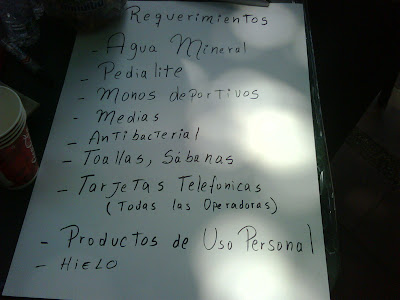 Requerimientos
- Agua Mineral
- Pedialite
- Monos deportivos
- Medias
- Antibacterial
- Toallas, Sábanas
- Tarjetas Telefonicas
(Todas las Operadoras)
- Productos de Uso Personal
- HIELO